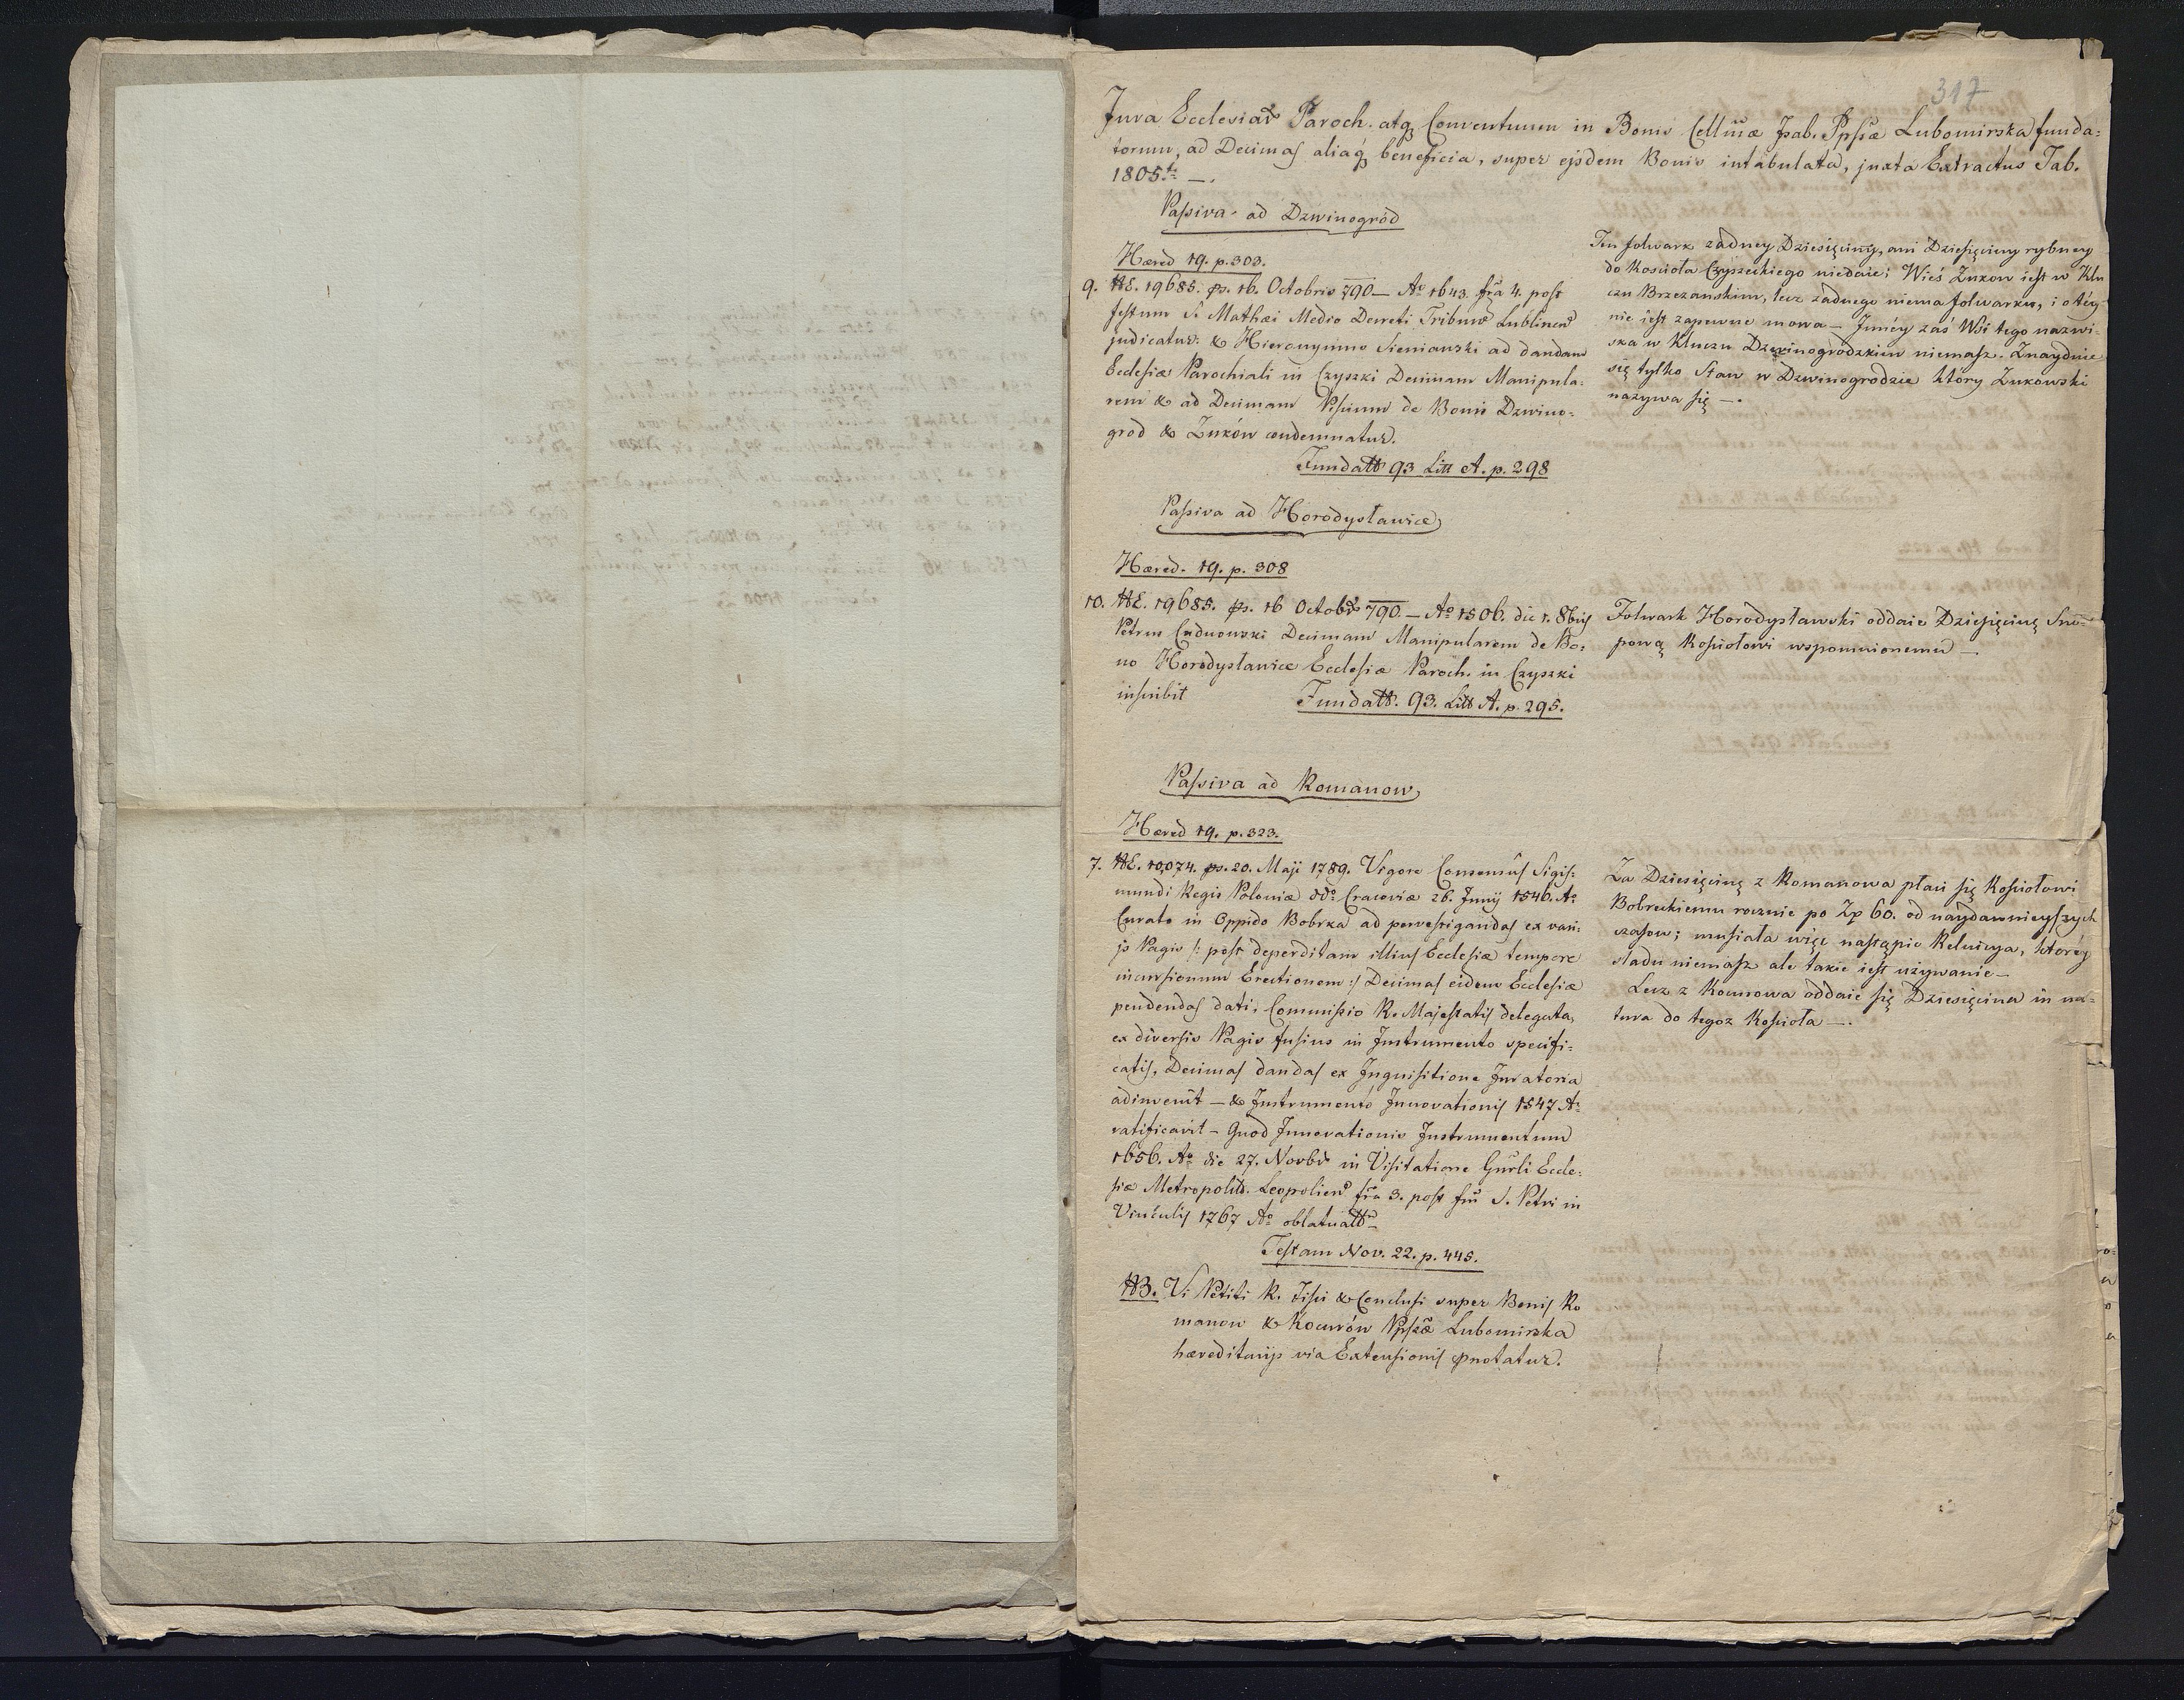 317
Jura Ecclesiar Paroch. atq Conventuum in Bonis Cellmæ Isab. Ppssæ Lubomirska funda=
torum, ad Decimas aliaq beneficia, super ejsdem Bonis intabulata, juxta Extractus Tab.
1805ti —.
Passiva ad Dzwinogród
Hæred 19. p. 303.
9. NE. 19685. ps. 16. Octobris 790 — Ao 1643. fra 4. post
festum S. Mathæi Medio Decreti Tribun Lublinen
judicatur: & Hieronymus Sieniawski ad dandam
Ecclesiæ Parochiali in Czyszki Decimam Manipula:
rem & ad Decimam Piscium de Bonis Dzwino:
grod & Zuków condemnatur.
Fundatt 93 Litt A. p. 298
Ten folwark zadney Dziesięciny, ani Dziesięciny rybney
do Koscioła Czyszeckiego niedaie; Wieś Zukow iest w Klu
czu Brzezanskim, lecz zadnego niema folwarku, i o téy
nie iest zapewne mowa — Innéy zaś Wsi tego nazwi-
ska w Kluczu Dzwinogrodzkim niemasz. Znayduie
się tylko Staw w Dzwinogrodzie który Zukowski
nazywa się —.
Passiva ad Horodysławice
Hæred. 19. p. 308
10. NE. 19685. ps. 16 Octobr 790. — Ao 1506. die 1. 8bris
Petrus Decimam Manipularem de Bo:
no Horodysławice Ecclesiæ Paroch. in Czyszki
inscribit
Fundatt. 93. Litt A. p. 295.
Folwark Horodysławski oddaie Dziesięcinę Sno=
pową Kosciołowi wspomnionemu —
Passiva ad Romanow
Hæred 19. p. 323.
7. NE. 10,074. ps. 20. Maji 1789. Vigore Consensus Sigis:
mundi Regis Poloniæ ddo Cracoviæ 26. Junij 1546. Ao
Curato in Oppido Bobrka ad pervestigandas ex vari:
js Pagis /: post deperditam illius Ecclesiæ tempore
incursionum Erectionem :/ Decimas eidem Ecclesiæ
pendendas dati, Commissio R. Majestatis delegata,
ex diversis Pagis fusius in Instrumento specifi:
catis, Decimas dandas ex Inquisitione Juratoria
adinvenit — & Instrumento Innovationis 1547 Ao
ratificavit — Quod Innovationis Instrumentum
1656. Ao die 27. Novbr in Visitatione Gnrli Eccle:
siæ Metropolit. Leopolien fra 3. post fm S. Petri in
Vinculis 1767 Ao oblatuatt
Testam Nov. 22. p. 445.
NB. Vi Petiti R. Fisci & Conclusi super Bonis Ro
manow & Kocurów Ppssæ Lubomirska
hæreditarijs via Extensionis pnotatur.
Za Dziesięcinę z Romanowa płaci się Kosciołowi
Bobreckiemu rocznie po Zp 60. od naydawnieyszych
czasow; musiała więc nastąpic Reluicya, któréy
sladu niemasz ale takie iest używanie —
Lecz z Kocurowa oddaie się Dziesięcina in na=
tura do tegoz Kościoła —.